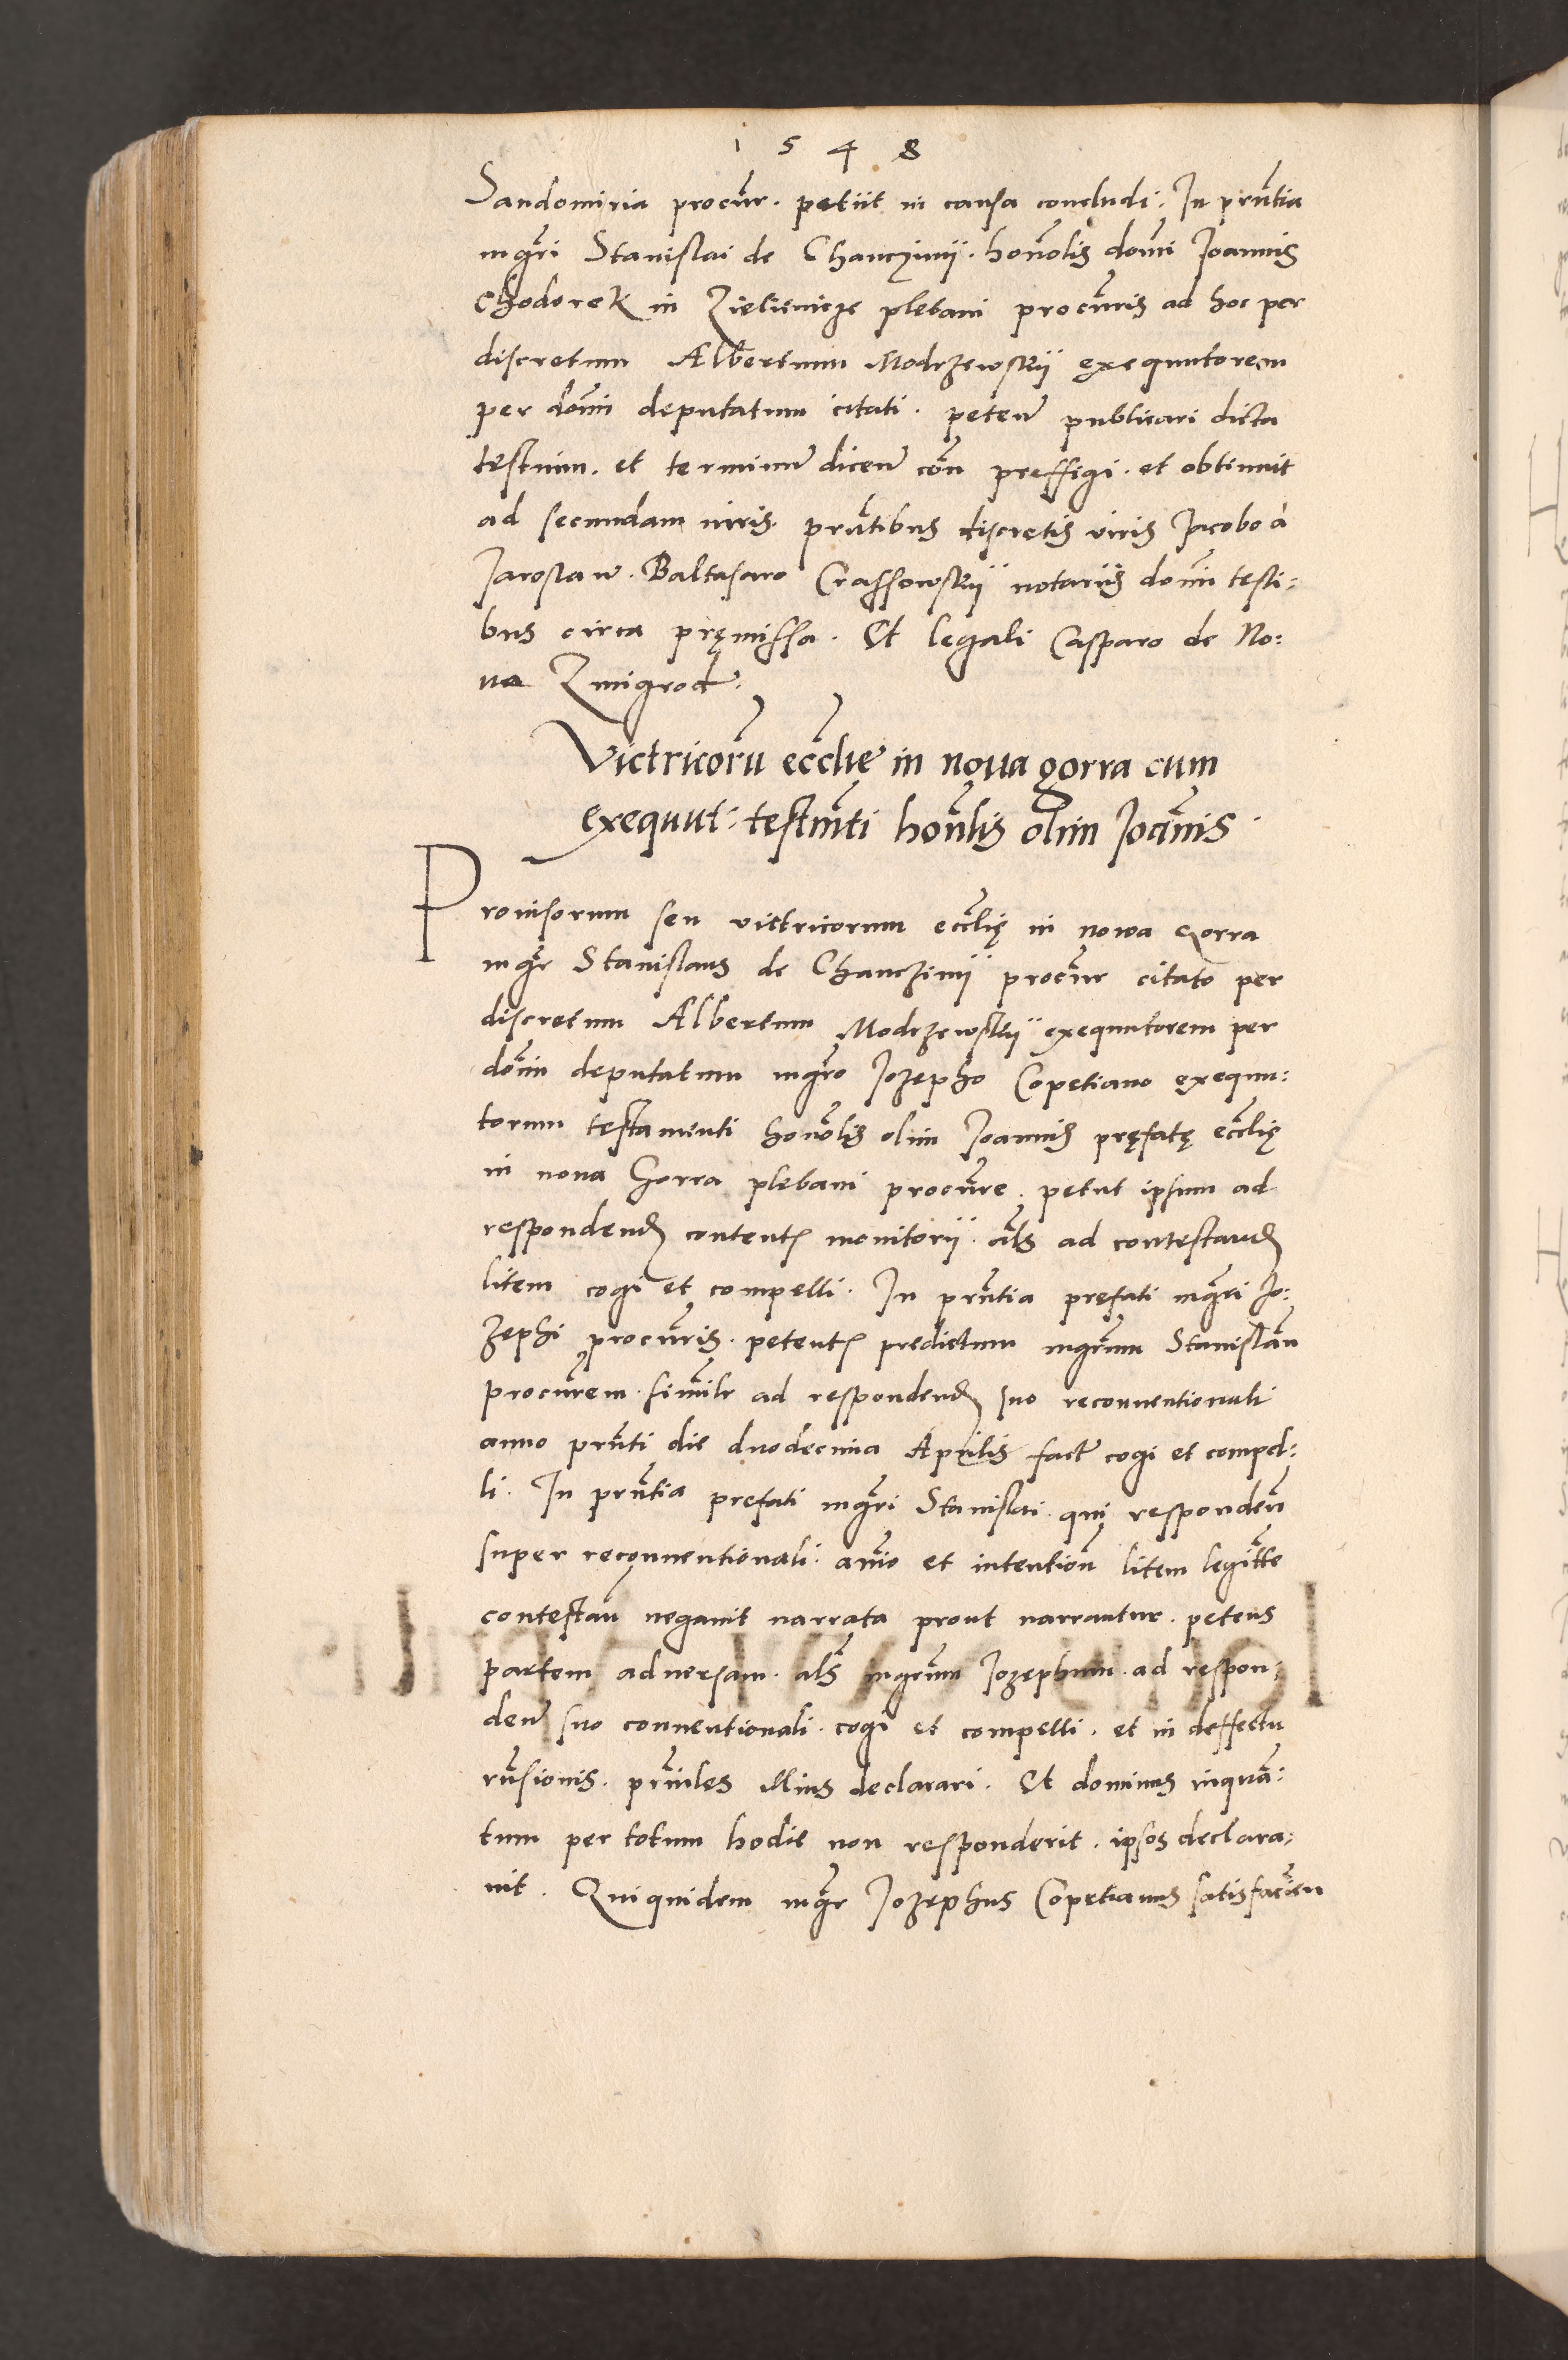 1548
Sandomiria procūr. petiit in causa concludi. In prn̄tia
mgr̄i Stanislai de Chanczinij. honōlis domī Joannis
Chodorek in Zielienicze plebani procūris ad hoc per
discretum Albertum Modrzewskij exequutorem
per domī deputatum citati. peten̄ publicari dicta
testium. et terminum dicen̄ con̄ preffigi. et obtinuit
ad secundam iuris. prn̄tibus discretis viris Jacobo a
Jaroslaw. Baltasaro Crassowskij notariis domī testi:
bus circa pręmissa. Et legali Casparo de No:
ua Zmigrod.
Victricorū ecclie in noua gorra cum
exequut: testmn̄ti honn̄lis olim Joannis.
Prouisorum seu victricorum ecclię in nowa Gorra
mgr̄ Stanislaus de Chanczinij procūr citato per
discretum Albertum Modrzewskij exequutorem per
domī deputatum mgr̄o Jozepho Copetiano exequu:
torum testamenti honōlis olim Joannis pręfatę ecclię
in noua Gorra plebani procūre. petut ipsum ad
respondend contentis monitorij. als ad contestand
litem cogi et compelli. In prn̄tia prefati mgr̄i Jo:
zephi procūris. petentis predictum mgr̄um Stanislaū
procūrem. similr ad respondend suo reconuentionali
anno prn̄ti die duodecima Aprilis fact cogi et compel:
li. In prn̄tia prefati mgr̄i Stanislai. qui responden̄
super reconuentionali. anīo et intention̄ litem legitt̄e
contestan̄ negauit narrata prout narrantur. petens
partem aduersam. als mgr̄um Jozephum. ad respon:
den̄ suo conuentionali. cogi et compelli. et in deffectu
rn̄sionis. illius declarari. Et dominus inquan̄:
tum per totum hodie non responderit. ipsos declara:
uit. Qui quidem mgr̄ Jozephus Copetianus satisfacien̄